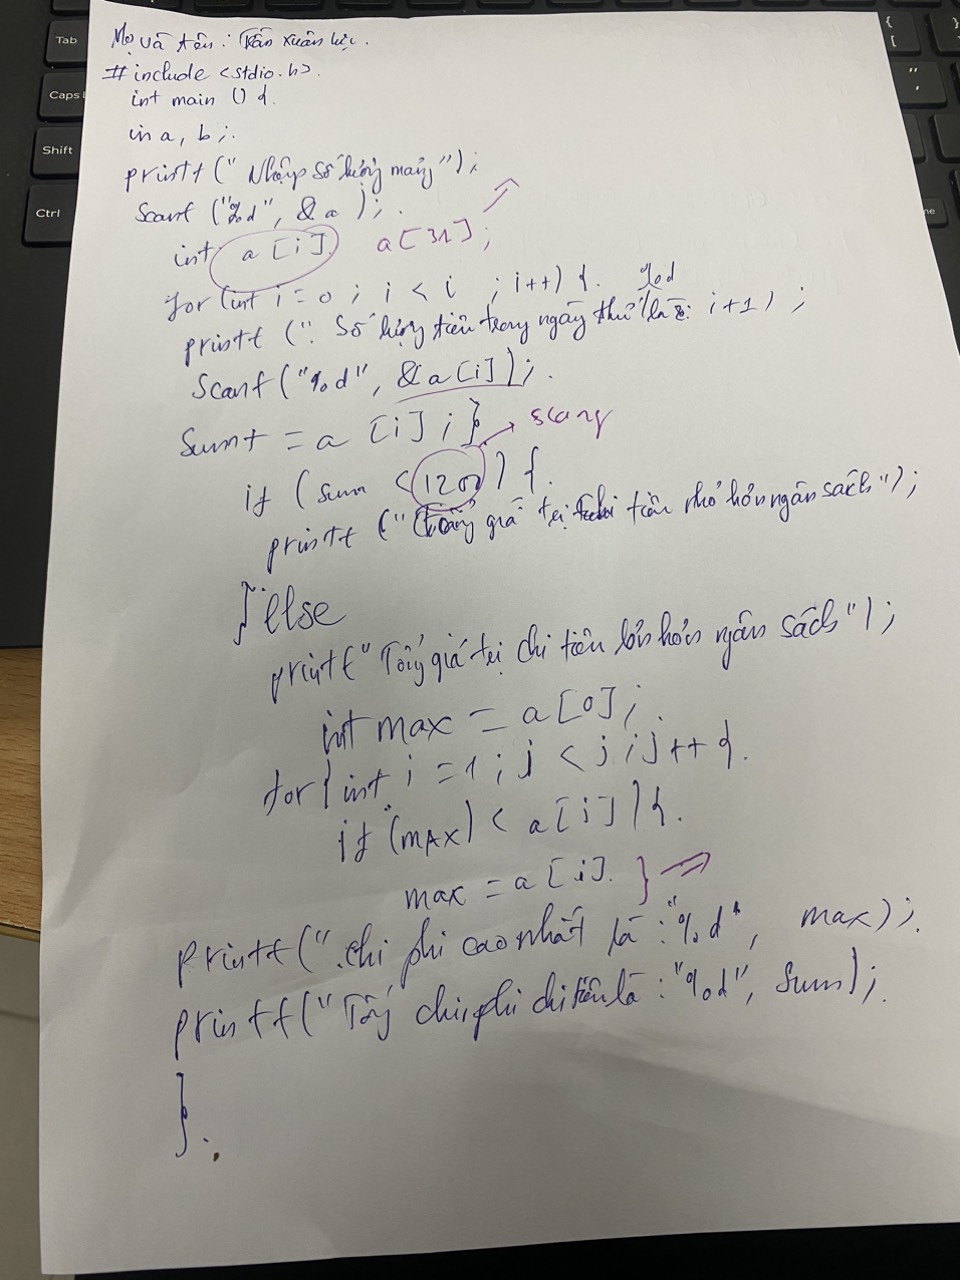 Tab
Caps
Shift
Ctrl
{
[
}
"
'
ne
Họ và tên: Trần Xuân Lực.
#include <stdio.h>.
int main () {.
in a, b;.
printf (" Nhập số lượng mảng");
Scanf ("%d", &a );.
int a [i]. a[31];
for (int i = 0 ; i < i ; i++) {. %d
printf (". Số lượng tiền trong ngày thứ là : i+1) ;
Scanf ("%d", &a[i]);.
Sum+ = a [i] ; } scanf
if (sum < 1200) {.
printf (" giá trị tiền nhỏ hơn ngân sách");
} else
printf(" Tổng giá trị chi tiêu lớn hơn ngân sách");
int max = a[0];.
for ( int i = 1 ; j < j ; j++ {.
if (max) < a[i] ) {.
max = a [i]. }
printf(". chi phí cao nhất là : "%d", max);.
printf("Tổng chi phí chi tiêu là : "%d", Sum);.
}.